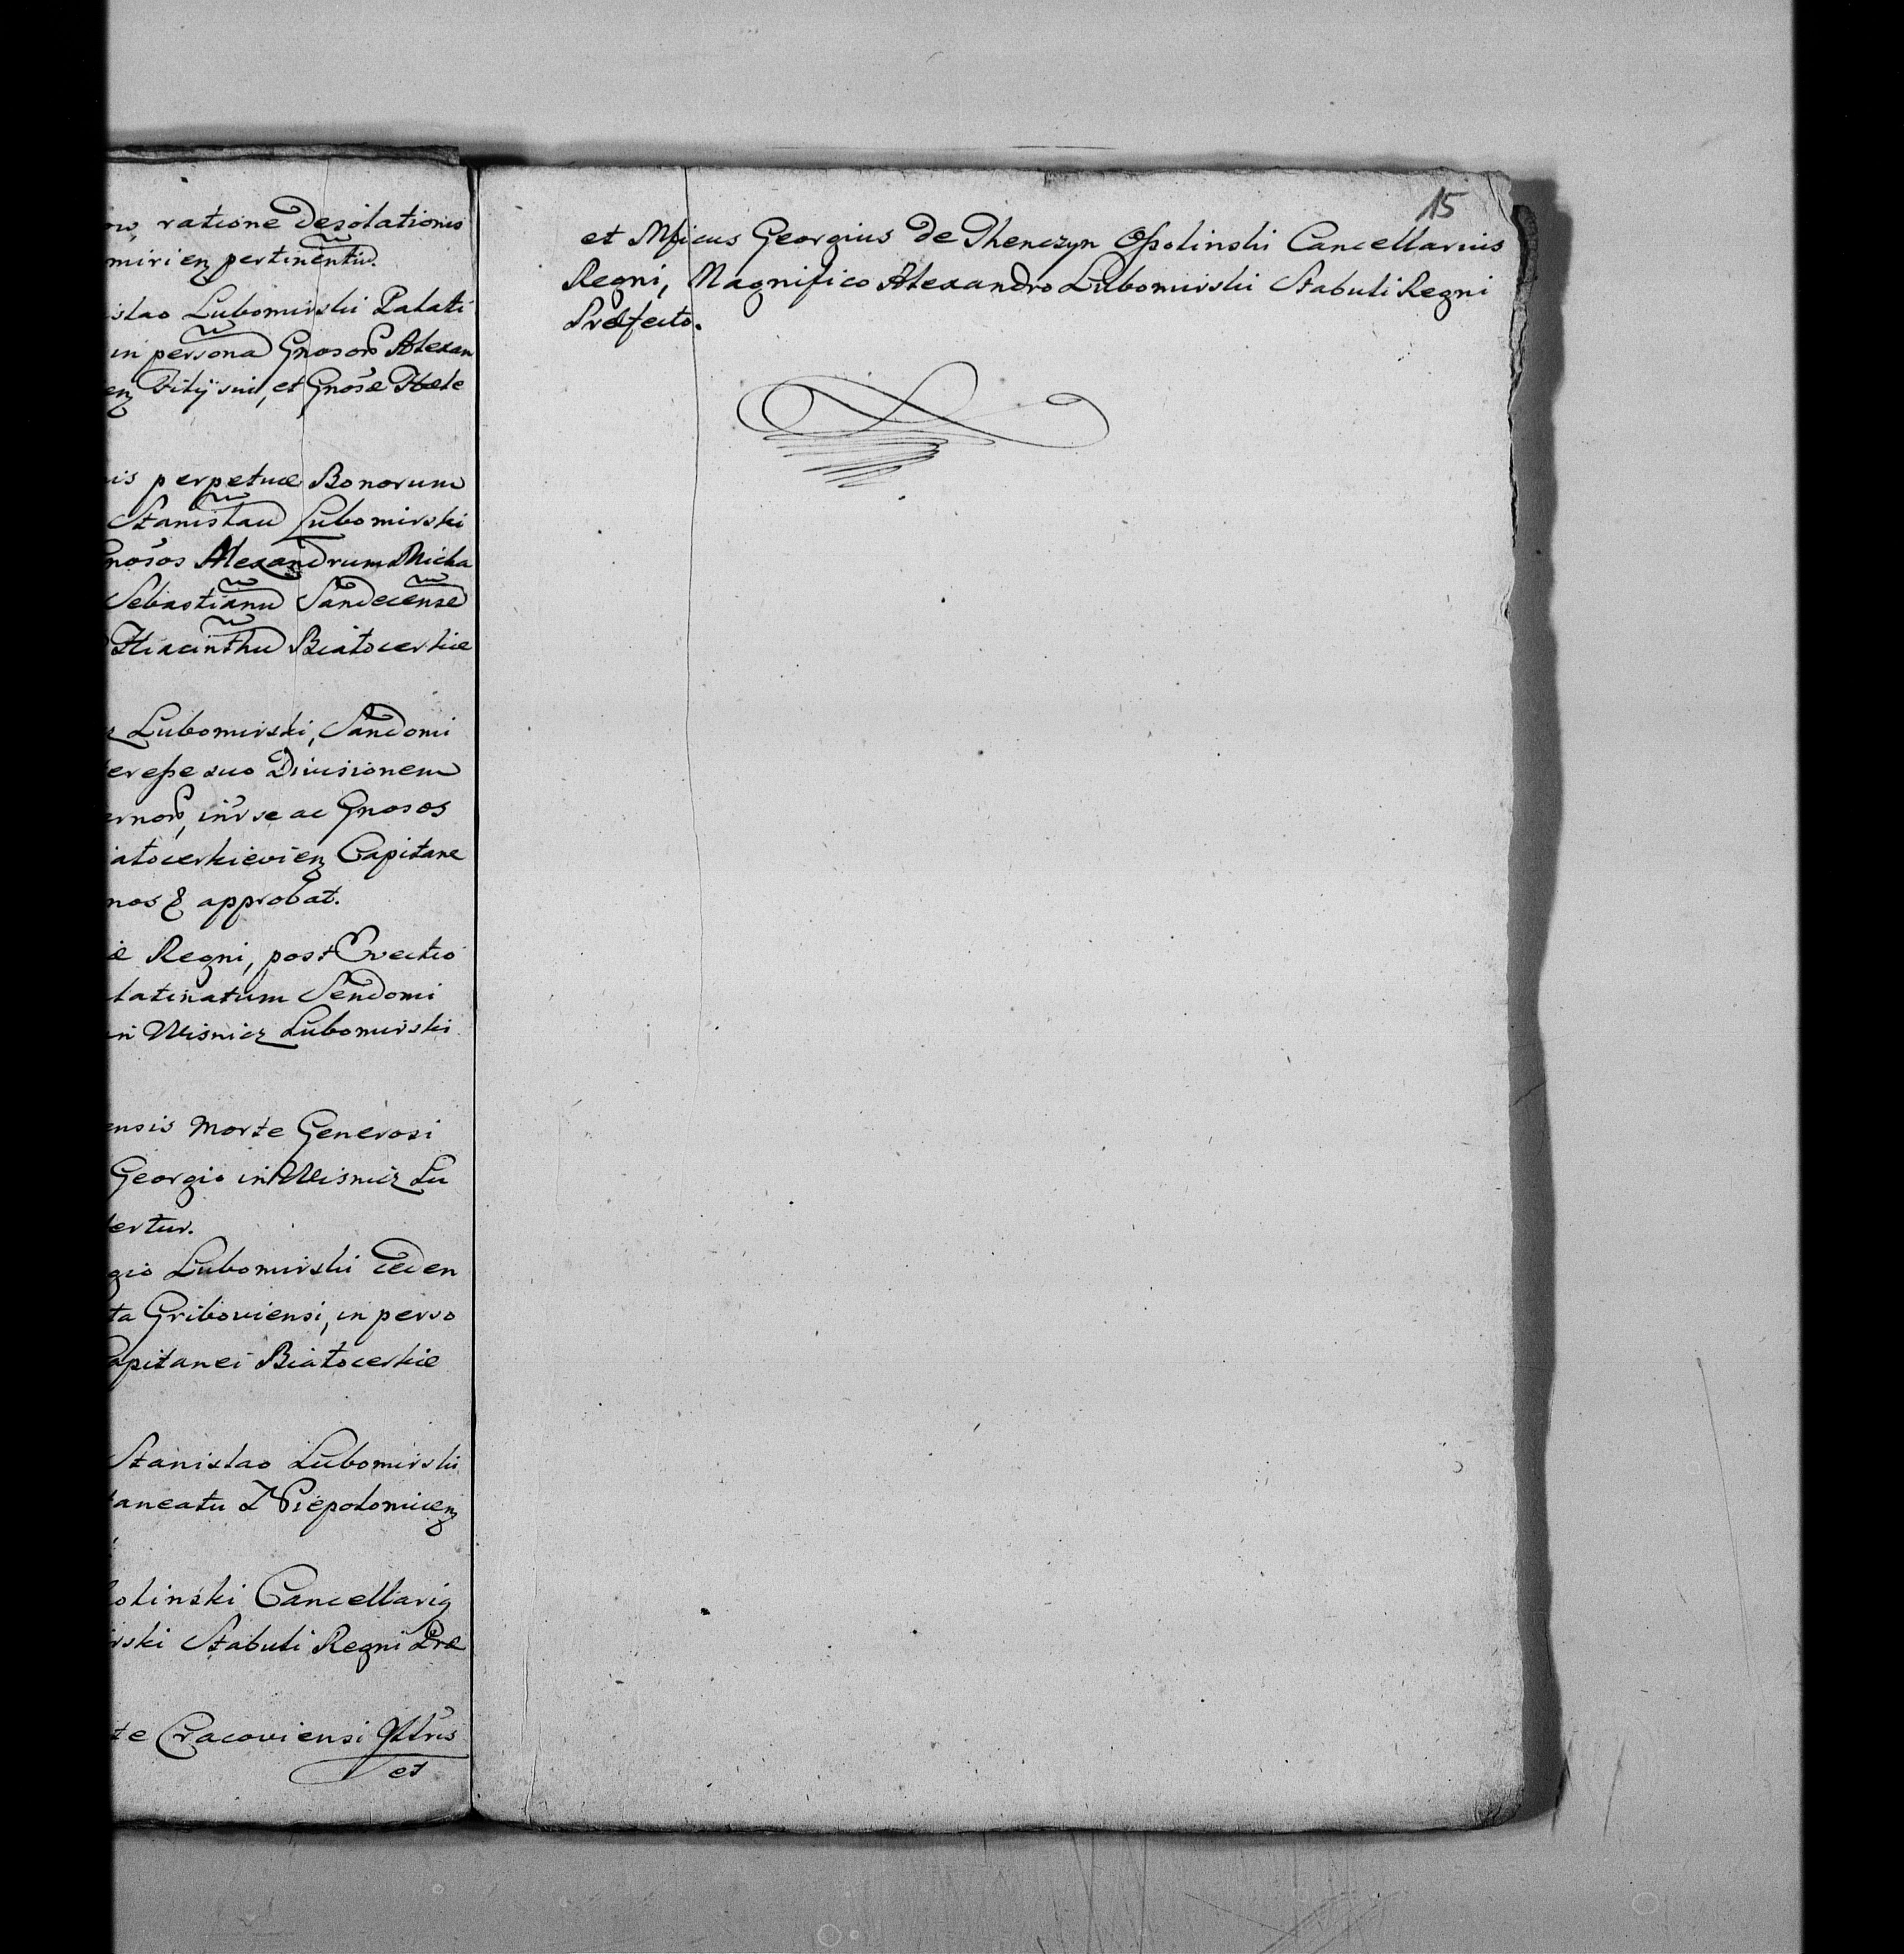 ratione Desolationis
mirien pertinentiu.
islao Lubomirski Palati
in persona Gnosor Alexan
en Filij sui, et Gnosæ Hele
is perpetuæ Bonorum
Stanislau Lubomirski
nosos Alexandrum Micha
Sebastianu Sandecense
Hiacinthu Białocerkie
Lubomirski, Sandomi
eresse suo Divisionem
ernor, intr se ac Gnosos
iatocerkievien Capitane
nos & approbat.
æ Regni, post Evectio
latinatum Sendomi
in Wisnicz Lubomirski
ensis Morte Generosi
Georgio in Wisnicz Lu
fertur.
gio Lubomirski ceden
ta Griboviensi, in perso
apitanei Białocerkie
Stanislao Lubomirski
taneatu Niepolomicen
olinski Cancellarig
rski Stabuli Regni Præ
te Cracoviensi Illtris
et
15
et Mficus Georgius de Thenczyn Ossolinski Cancellarius
Regni, Magnifico Alexandro Lubomirski Stabuli Regni
Præfecto.